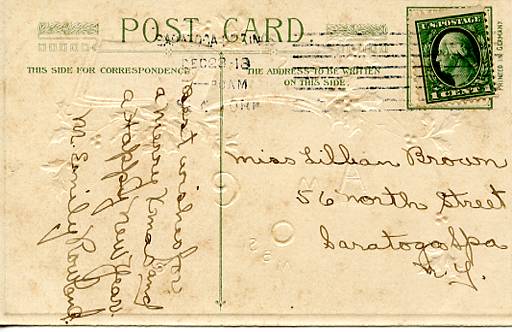 POST CARD
THIS SIDE FOR CORRESPONDENCE
THE ADDRESS TO BE WRITTEN
ON THIS SIDE.
DEC 23 13
AM
U.S. POSTAGE
1 CENT 1
PRINTED IN GERMANY
Best wishes for
a merry Xmas and
a Happy New Year.
M. Emily Rowland.
Miss Lillian Brown
56 North Street
Saratoga Spa
N.Y.